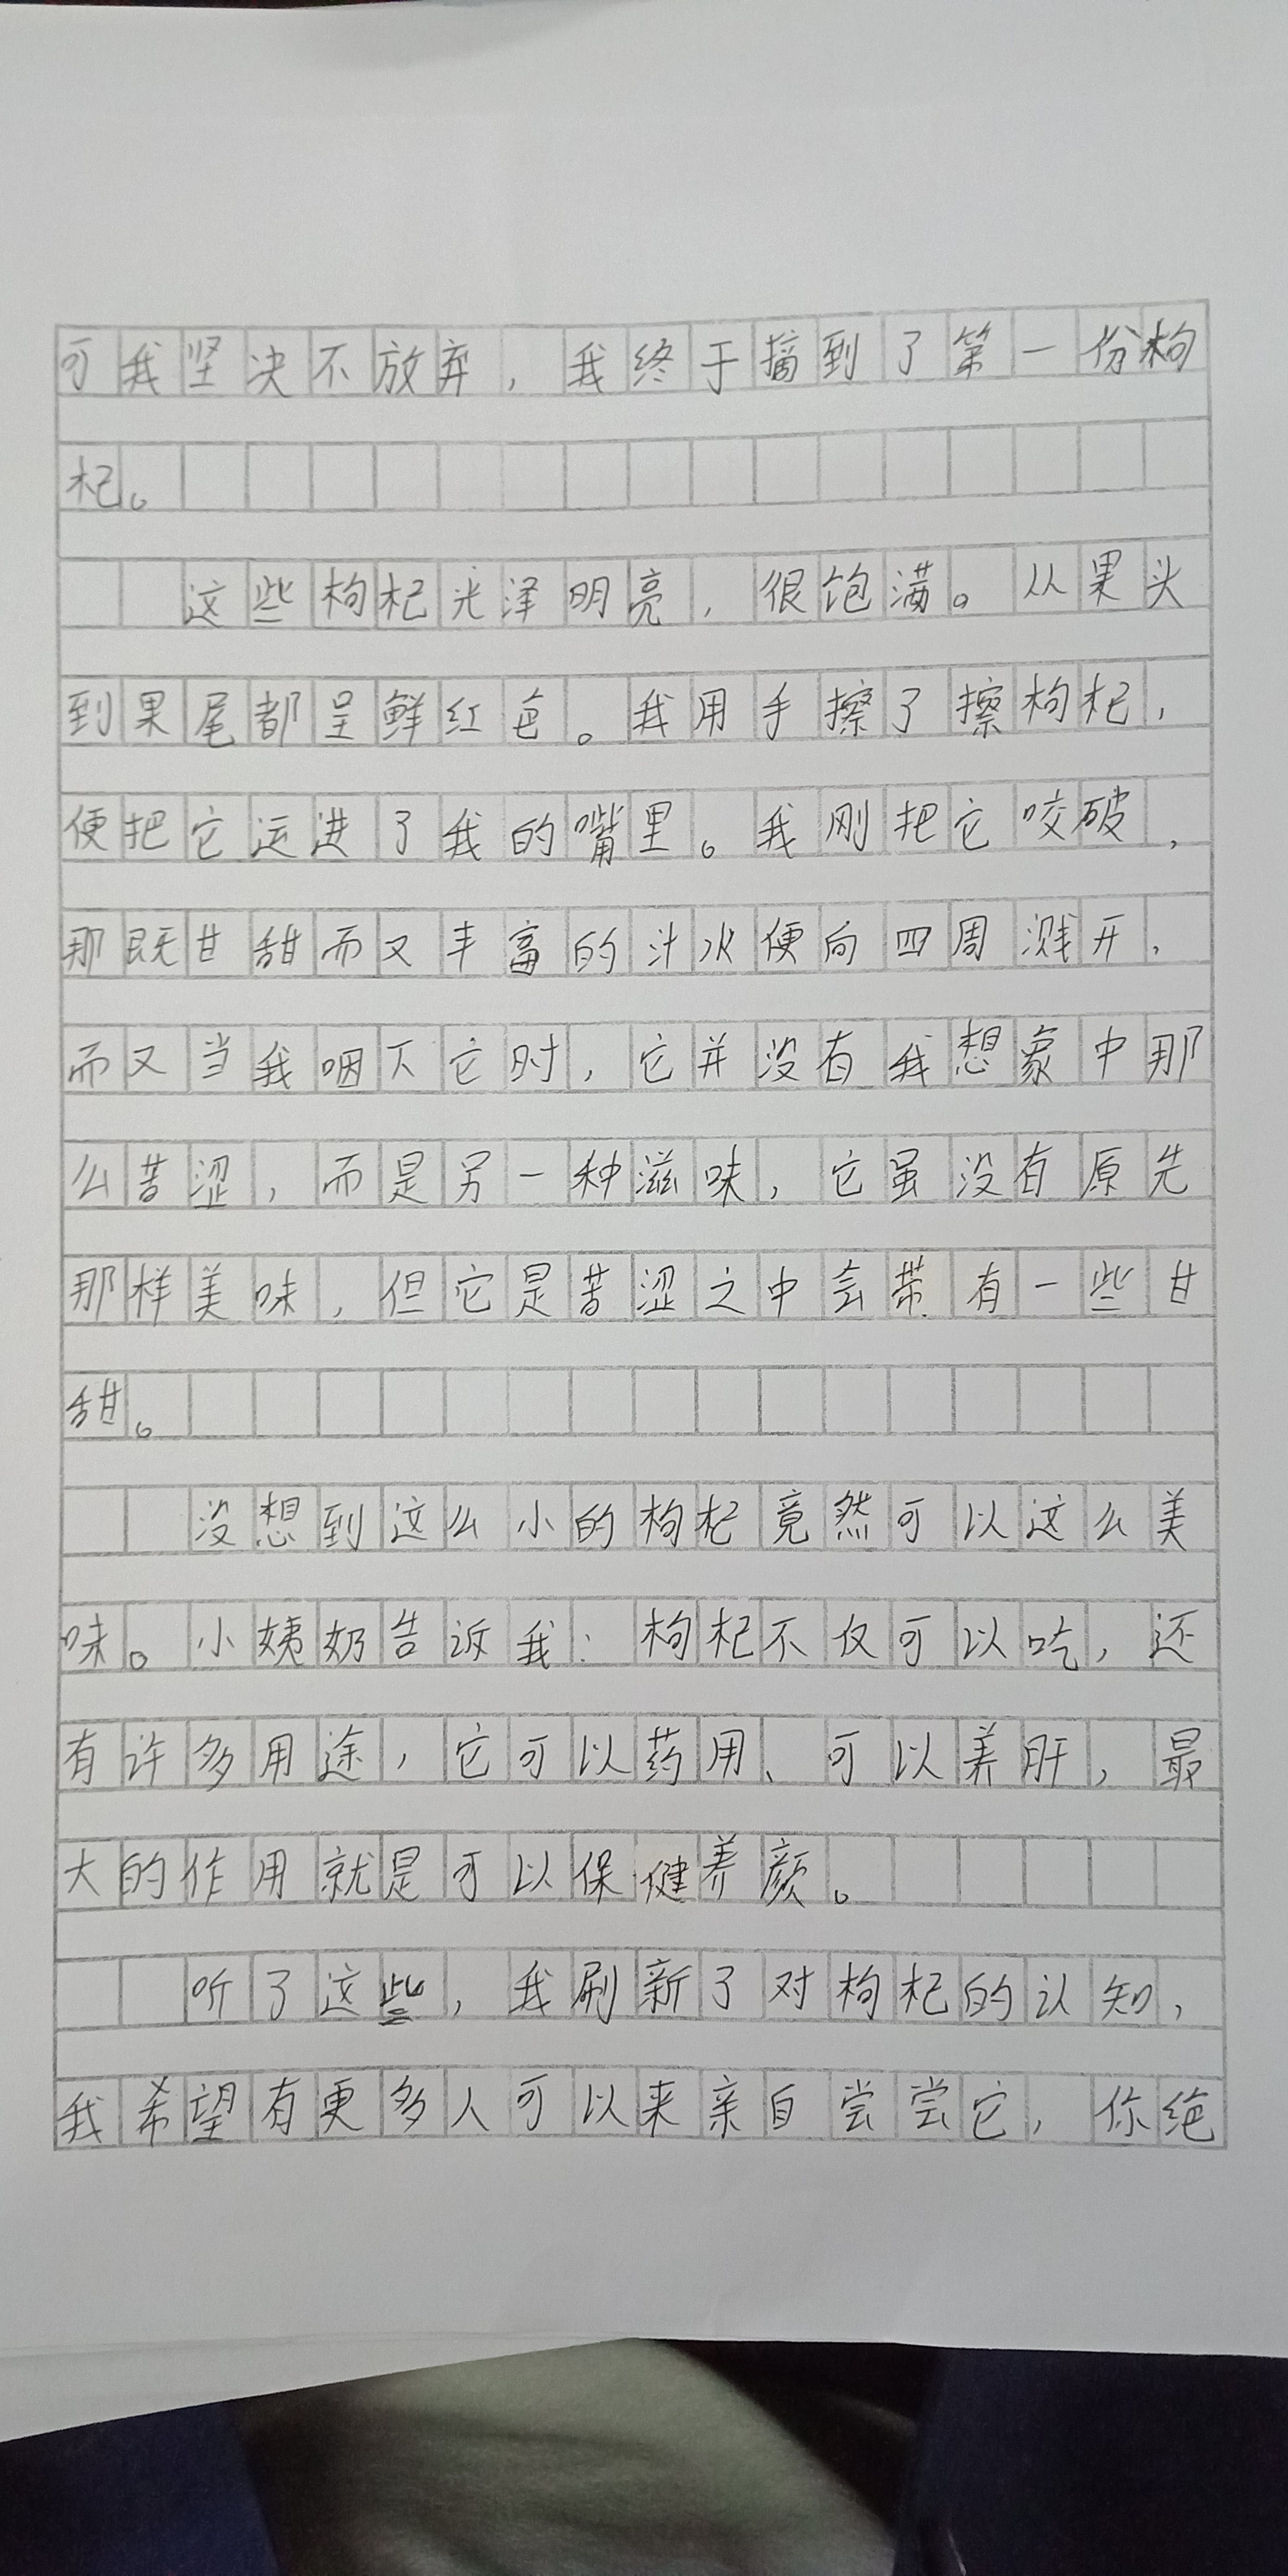 可我坚决不放弃，我终于摘到了第一份枸
杞。
这些枸杞光泽明亮，很饱满。从果头
到果尾都呈鲜红色。我用手擦了擦枸杞，
便把它运进了我的嘴里。我刚把它咬破，
那既甘甜而又丰富的汁水便向四周溅开，
而又当我咽下它时，它并没有我想象中那
么苦涩，而是另一种滋味，它虽没有原先
那样美味，但它是苦涩之中会带有一些甘
甜。
没想到这么小的枸杞竟然可以这么美
味。小姨奶告诉我：枸杞不仅可以吃，还
有许多用途，它可以药用、可以养肝，最
大的作用就是可以保健养颜。
听了这些，我刷新了对枸杞的认知，
我希望有更多人可以来亲自尝尝它，你绝